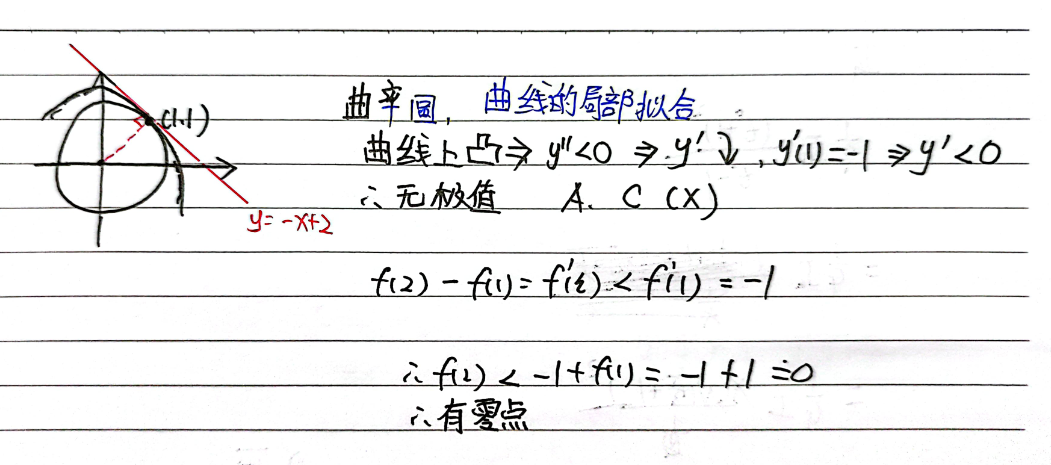 曲率圆, 曲线的局部拟合
(1,1)
曲线上凸⇒y''<0 ⇒ y'↘, y'(1)=-1⇒y'<0
∴无极值 A. C (X)
y=-x+2
f(2)-f(1)=f'(ξ)<f'(1)=-1
∴f(2)<-1+f(1)=-1+1=0
∴有零点